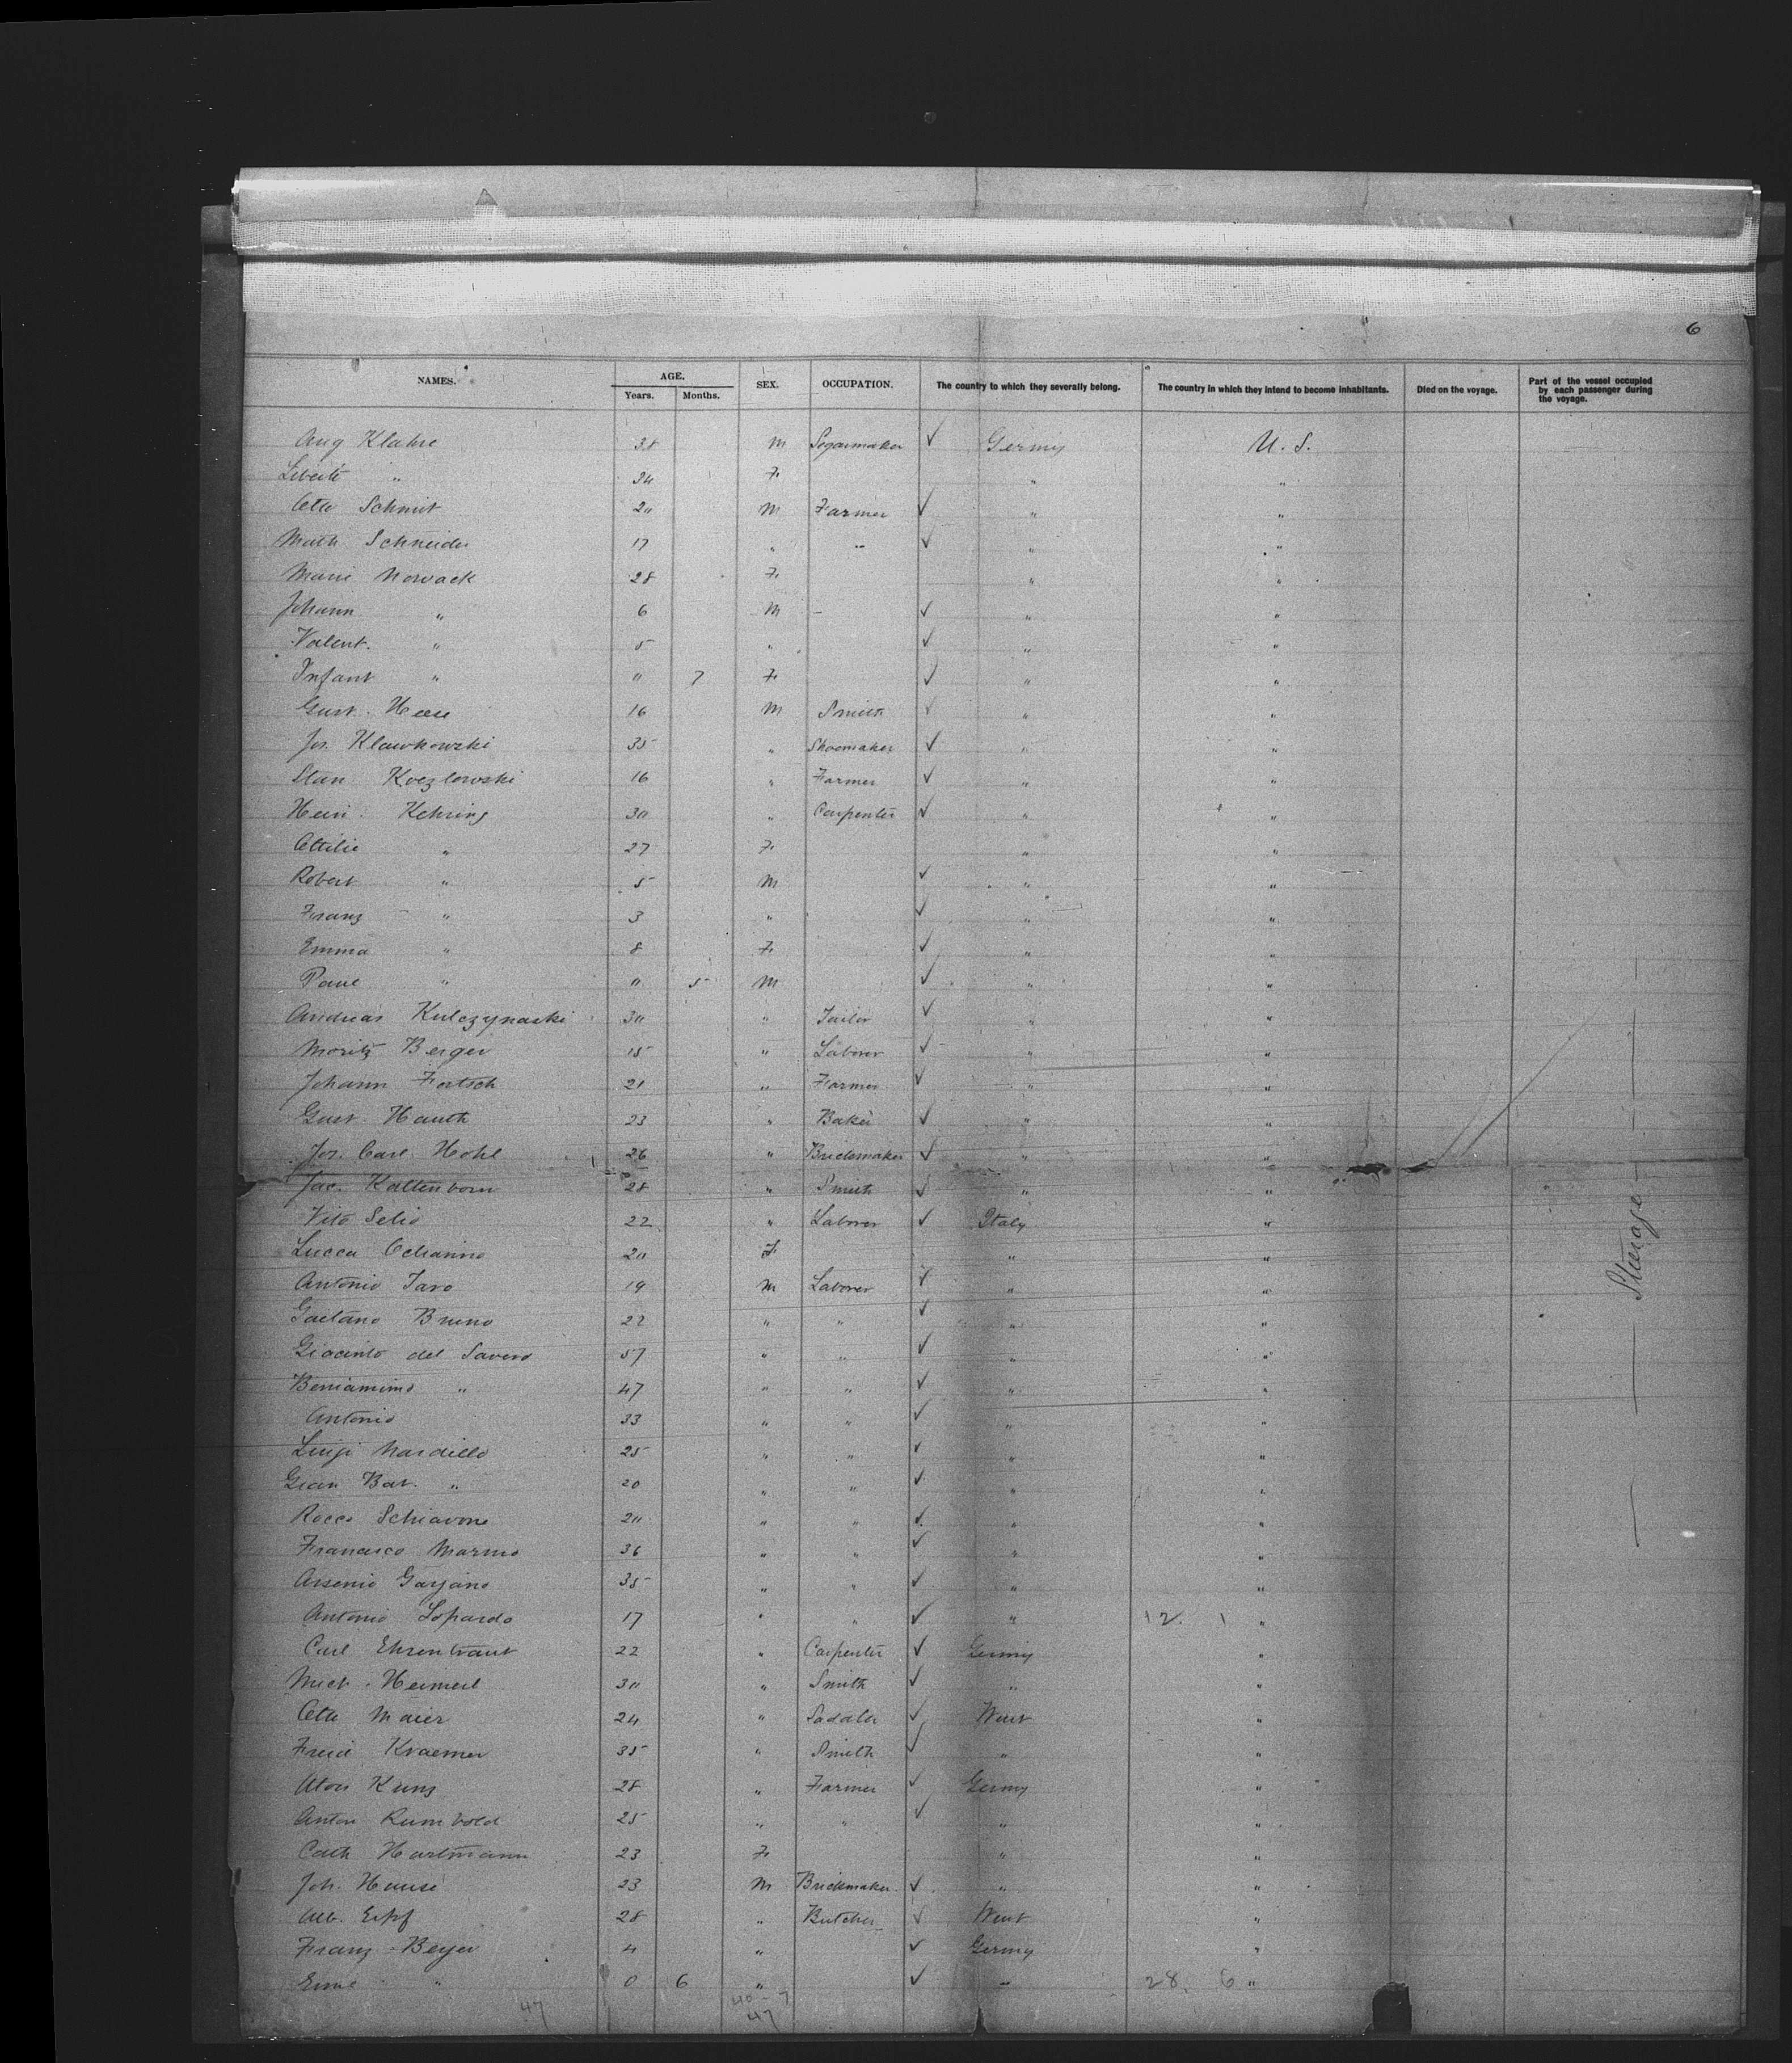 6
NAMES. AGE. Years. Months. SEX. OCCUPATION. The country to which they severally belong. The country in which they intend to become inhabitants. Died on the voyage. Part of the vessel occupied by each passenger during the voyage.
Aug Klahre 38 M Segarmaker ✓ Germy U. S.
" 34 F " "
Otto Schmit 20 M Farmer ✓ " "
Math Schneider 17 " " ✓ " "
Marie Nowack 28 F " "
Johann " 6 M - ✓ " "
Valent. " 5 " ✓ " "
Infant " " 7 F ✓ " "
Gust. 16 M Smith ✓ " "
Jos. Klawkowski 35 " Shoemaker ✓ " "
Stan Koczlowski 16 " Farmer ✓ " "
Hein. Kehring 30 " Carpenter ✓ " "
Ottilie " 27 F " "
Robert " 5 M ✓ " "
Franz " 3 " ✓ " "
Emma " 8 F ✓ " "
Paul " " 5 M ✓ " "
Andreas Kulczynaski 30 " Tailor ✓ " "
Moritz Berger 15 " Laborer ✓ " "
Johann Fortsch 21 " Farmer ✓ " "
Gust. Hauth 23 " Baker ✓ " "
Jos. Carl Hohl 26 " Brickmaker ✓ " "
Jac. Kaltenborn 28 " Smith ✓ " "
Vito Selio 22 " Laborer ✓ Italy "
Lucca 20 F " "
Antonio Taro 19 M Laborer ✓ " "
Gaetano Bruno 22 " " ✓ " "
Giacinto del Savero 57 " " ✓ " "
Beniamino " 47 " " ✓ " "
Antonio 33 " " ✓ " "
Luigi Nardiello 25 " " ✓ " "
Gian Bat. " 20 " " ✓ " "
Rocco Schiavone 20 " " ✓ " "
Francesco Marmo 36 " " ✓ " "
Arsenio Garjano 35 " " ✓ " "
Antonio Lopardo 17 " " ✓ " 12. 1 "
Carl Ehrentraut 22 " Carpenter ✓ Germy "
Mich. Heimerl 30 " Smith ✓ " "
Otto Maier 24 " Saddler ✓ Wurt "
Fried Kraemer 35 " Smith ✓ " "
Alois Kunz 28 " Farmer ✓ Germy "
Anton Rumbold 25 " " ✓ " "
Cath Hartmann 23 F " "
Joh. Hause 23 M Brickmaker ✓ " "
Alb. Erpf 28 " Butcher ✓ Wurt "
Franz Beyer 4 " ✓ Germy "
" 0 6 " ✓ " 28. 6 "
47 40-7
47
Steerage